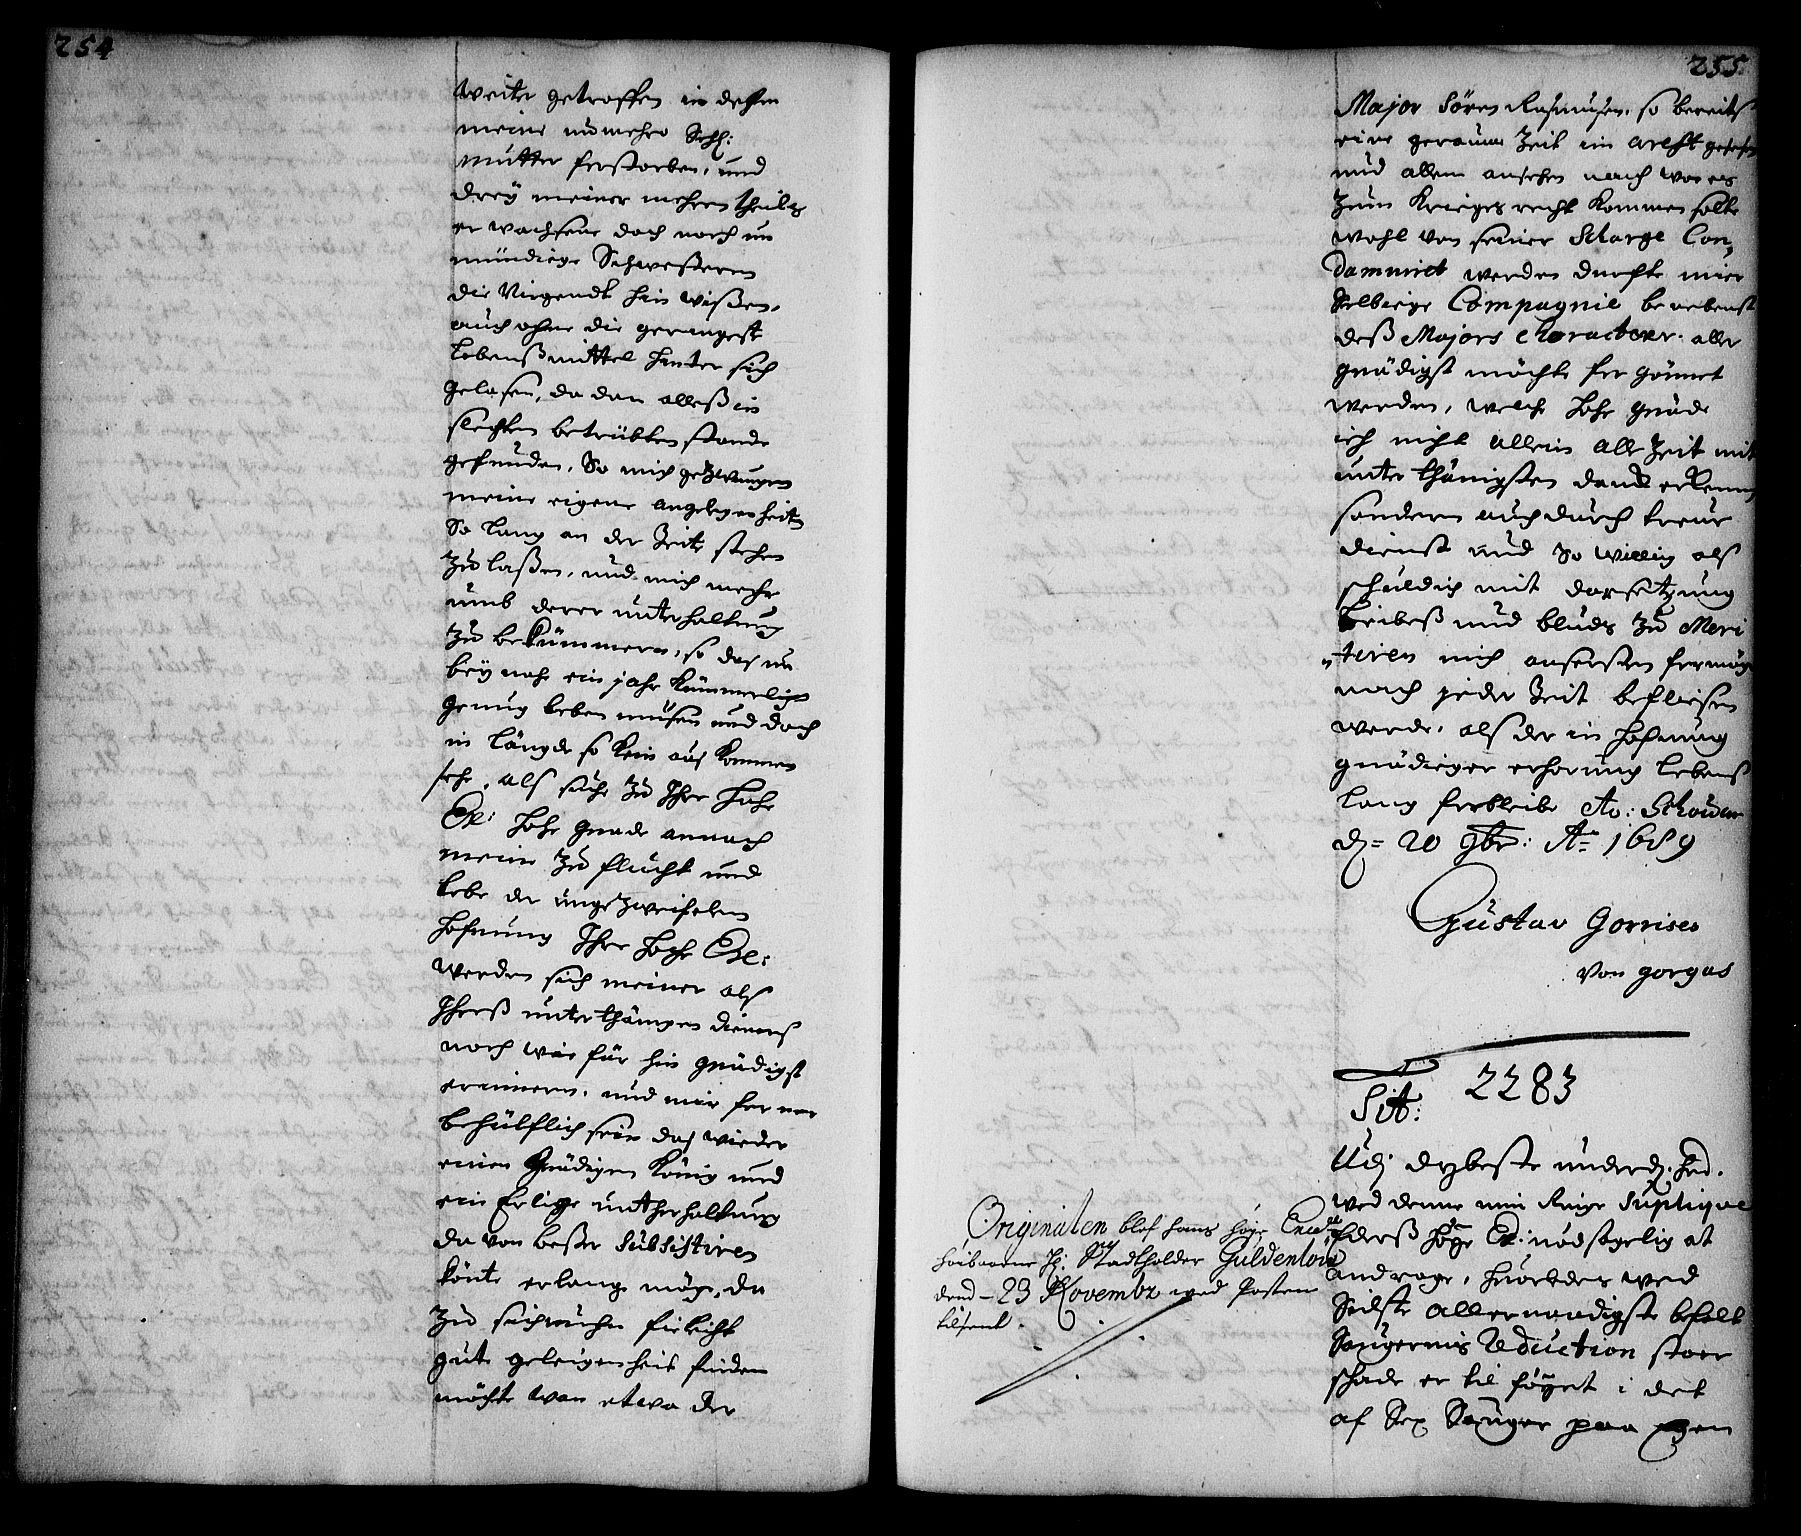 254
weiter getroffen in dehm
meine númehro Sehl:
mutter ferstorben, und
dreÿ meiner mehren theils
er wachsene doch noch un
mündiege Schwestern
die Niegendt hin wißen,
auch ohne die geringest
lebenß mittel hinter sich
gelasen, da dan alleß in
slechten betrübten stande
gefunden, So mich gezwungen
meine eigene angelegenheit
So lang an der Zeit stehen
zu laßen, und mich mehr
umb derer unterhaltung
zu bekümmern, so das nu
beÿ nahe ein jahr kümmerlich
genug leben müsen und doch
in längde so kein aus kommen
sehe, als suche zu Ihr Hohe
Ex: Hohe gnade annoch
meine zu flucht und
lebe der ungezweifelen
Hofnung Ihr Hohe Exe:
werden sich meiner als
Ihreß unterthänigen dieners
noch wie für hin gnädigst
erinnern, und mir ferner
behülflich sein das wieder
einen Gnädigen König und
ein Erlige untherhaltung
da von beßer Subsistiren
könte erlangen möge, da
zu sich nuhn fieleicht
gute geleigenheit finden
möchte wan etwa der
255.
Major Sören Rasmusen, so bereits
eine geraume Zeit im arest gesesen
und allem ansehen nach wan es
zum Kriegesrecht kommen solte
wohl von seiner Scharge Con„
damniret werden durfte mier
Selbiege Compagnie benebenst
deß Majors Character aller
gnädigst möchte fer gönnet
werden, welche Hohe gnade
ich nicht allein alle Zeit mit
unterthänigsten danck erkennen
sondern auch durch treue
dienst und so willig als
schuldich mit darsetzung
leibeß und bluds zu Meri
„tiren mich auserstem fermögen
nach jeder Zeit befleisen
werde, als der in Hofnung
gnädieger erhorung lebenß
lang ferbleibe Av: Schouen
d= 20 9br: Ao 1689
Gustav Gorrisen
von gorgas
Sit: 2283
Udj dybeste underd. hed.
wed denne min Ringe Suplique
Ederß høÿe Ex: nødsagelig at
andrage, huorledes wed
Sidste allernaadigste befalt
Saugernis Reduction stoer
schade er til føÿet i det
af Sex Sauger paa egen
Originalen blef hans høÿe Excell
høibaarne H: Stadtholder Guldenlöw
dend 23 Novembr wed Posten
tilsent.